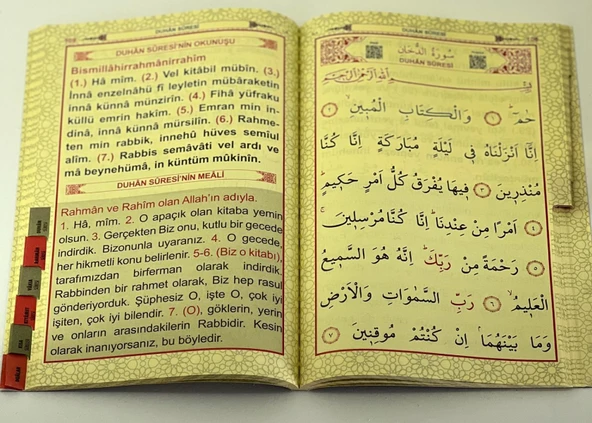 DUHÂN SÛRESİ
DUHÂN SÛRESİ'NİN OKUNUŞU
Bismillâhirrahmânirrahîm
(1.) Hâ mîm. (2.) Vel kitâbil mübîn. (3.)
İnnâ enzelnâhü fî leyletin mübâraketin
innâ künnâ münzirîn. (4.) Fîhâ yüfraku
küllü emrin hakîm. (5.) Emran min in-
dinâ, innâ künnâ mürsilîn. (6.) Rahme-
ten min rabbik, innehû hüves semîul
alîm. (7.) Rabbis semâvâti vel ardı ve
mâ beynehümâ, in küntüm mûkinîn.
DUHÂN SÛRESİ'NİN MEÂLİ
Rahmân ve Rahîm olan Allah'ın adıyla.
1. Hâ, mîm. 2. O apaçık olan kitaba yemin
olsun. 3. Gerçekten Biz onu, kutlu bir gecede
indirdik. Bizonunla uyaranız. 4. O gecede,
her hikmetli konu belirlenir. 5-6. (Biz o kitabı),
tarafımızdan birferman olarak indirdik.
Rabbinden bir rahmet olarak, Biz hep rasul
gönderiyorduk. Şüphesiz O, işte O, çok iyi
işiten, çok iyi bilendir. 7. (O), göklerin, yerin
ve onların arasındakilerin Rabbidir. Kesin
olarak inanıyorsanız, bu böyledir.
DUHÂN SÛRESİ
سُورَةُ الدُّخَانِ
DUHÂN SÛRESİ
بِسْمِ اللّٰهِ الرَّحْمٰنِ الرَّحِيمِ
حٰمٓ ١ وَالْكِتَابِ الْمُبِينِ ٢
اِنَّٓا اَنْزَلْنَاهُ فِي لَيْلَةٍ مُبَارَكَةٍ اِنَّا كُنَّا
مُنْذِرِينَ ٣ فِيهَا يُفْرَقُ كُلُّ اَمْرٍ حَكِيمٍ
٤ اَمْرًا مِنْ عِنْدِنَا اِنَّا كُنَّا مُرْسِلِينَ
٥ رَحْمَةً مِنْ رَبِّكَ اِنَّهُ هُوَ السَّمِيعُ
الْعَلِيمُ ٦ رَبِّ السَّمٰوَاتِ وَالْاَرْضِ
وَمَا بَيْنَهُمَا اِنْ كُنْتُمْ مُوقِنِينَ ٧